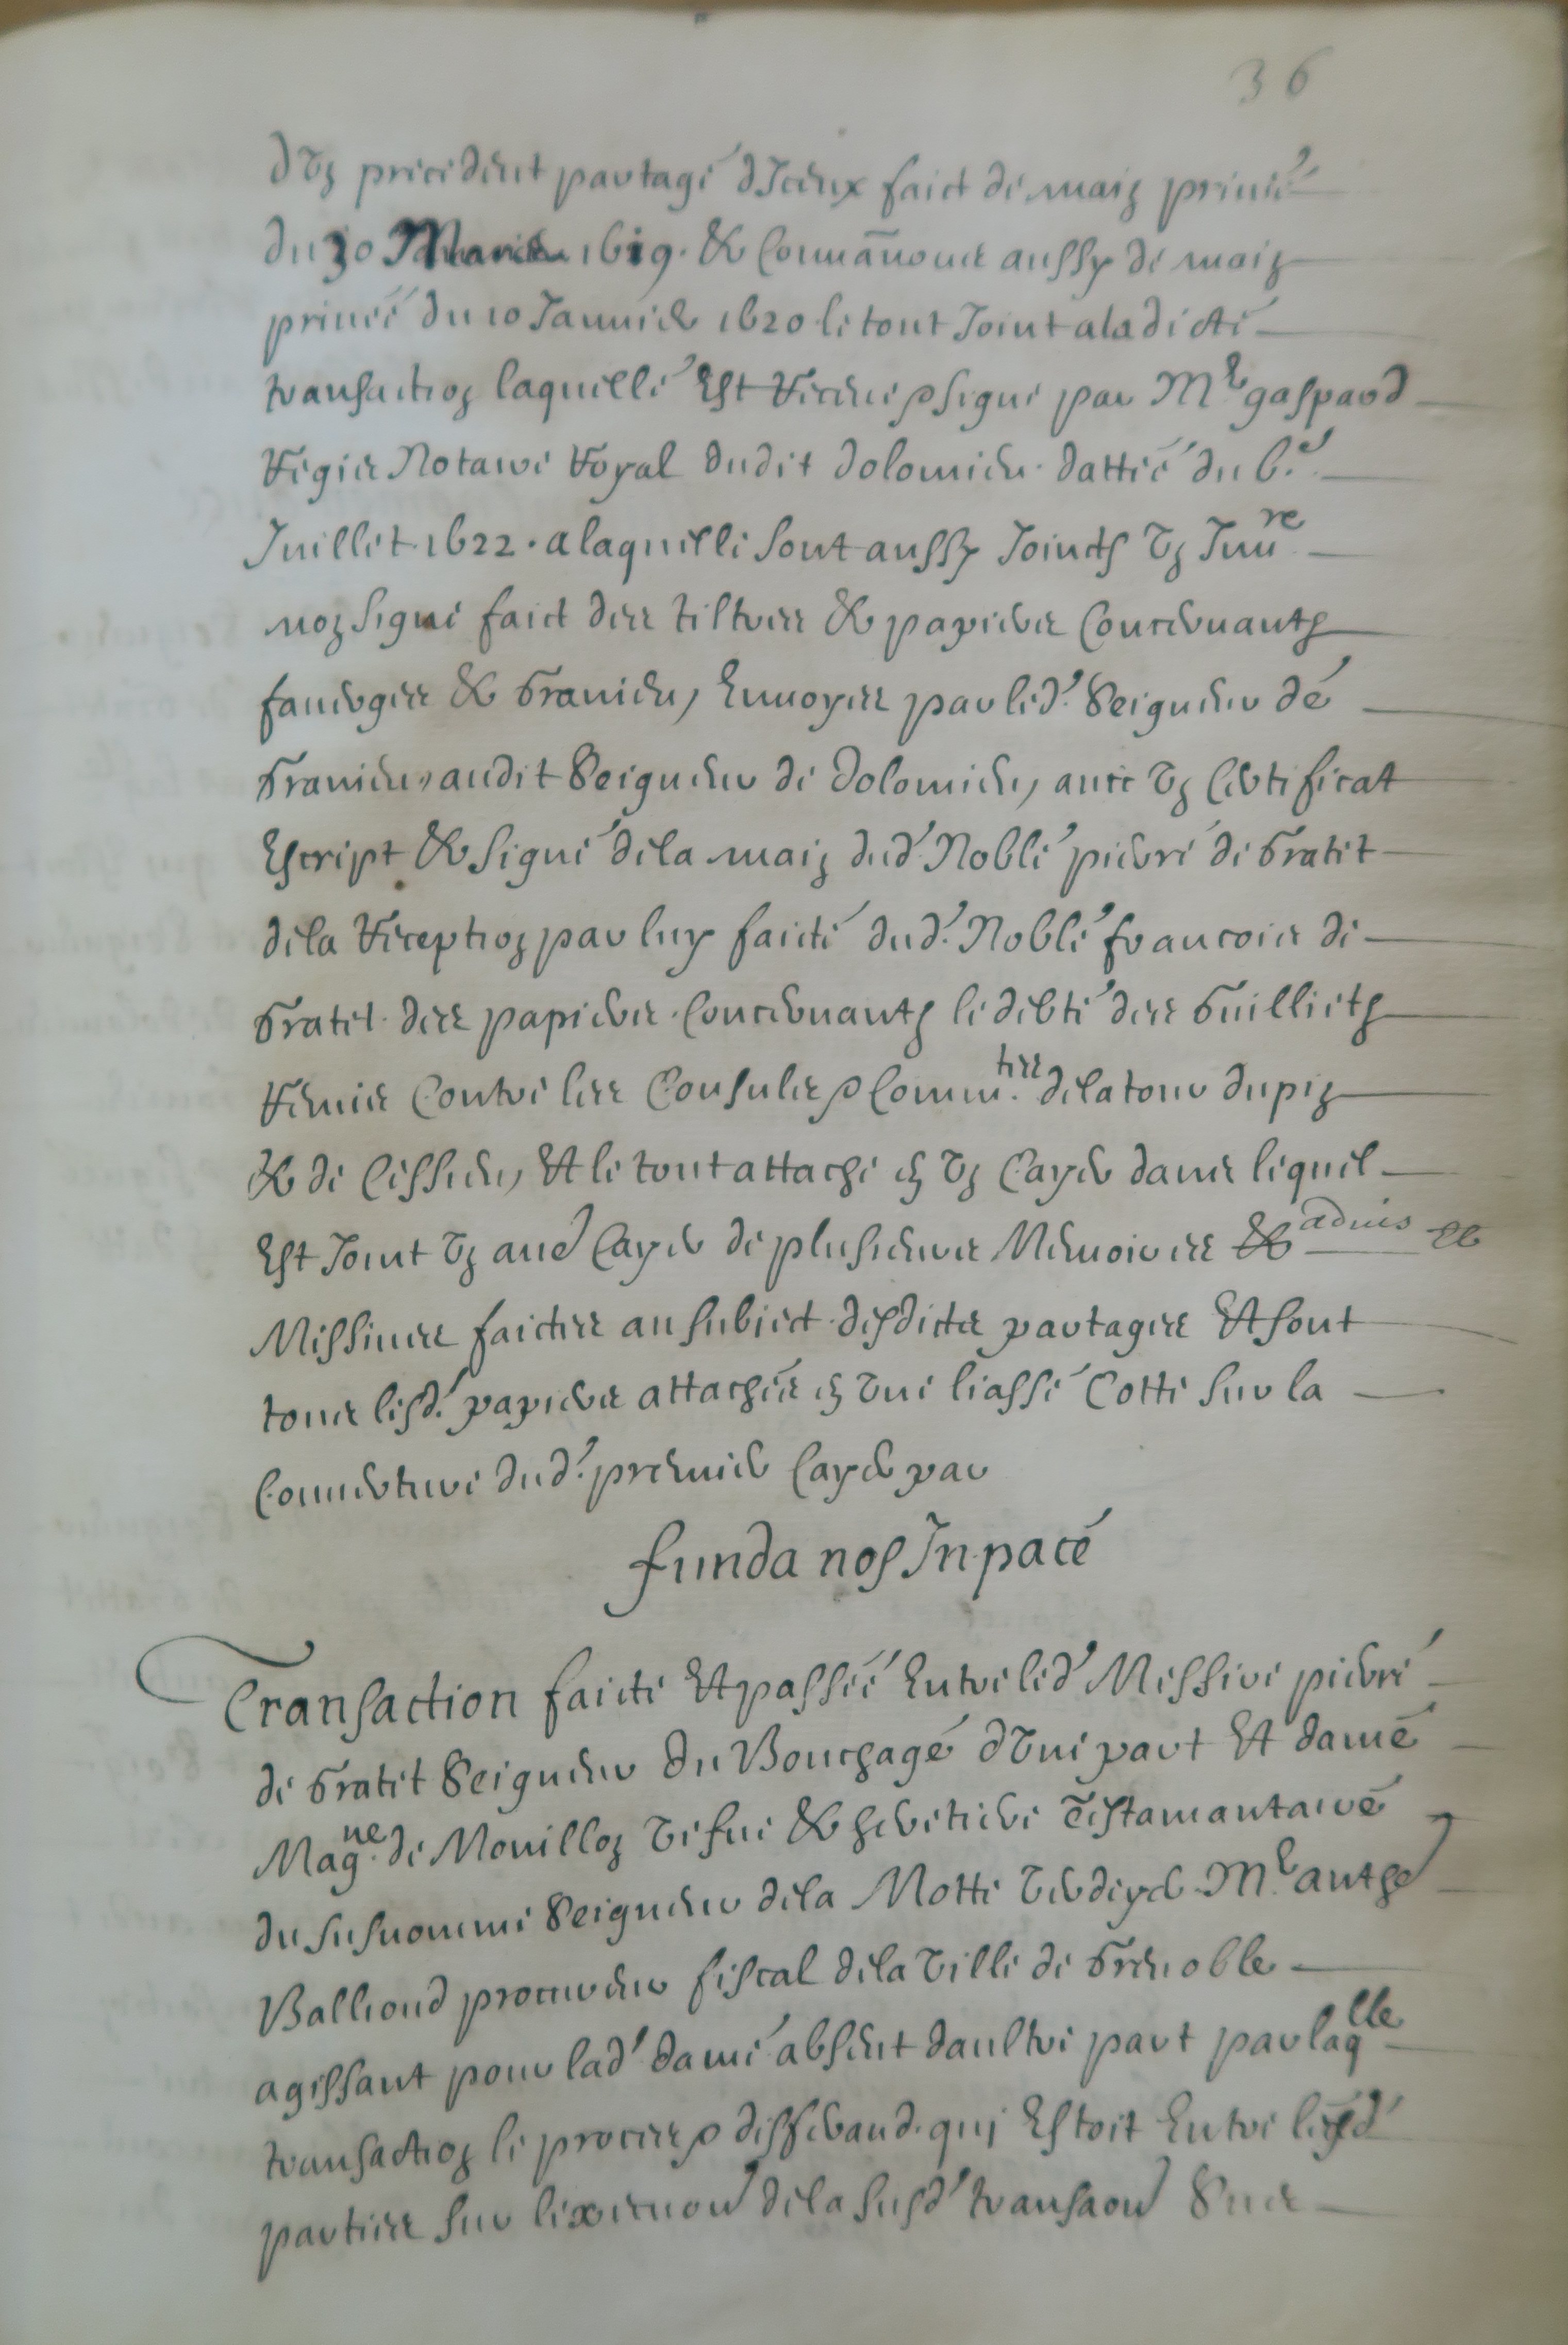 36
dun precedent partage diceux faict de main privée
du 30 Mars 1619. & Convãnonce aussy de main
privée du 10 Januier 1620 le tout Joint a la dicte
transaction laquelle Est receue & signe par Mr gaspard
Regis Notaire Royal dudit dolomieu. dattée du 6.e
Juillet. 1622. a laquelle sont aussy Joincts un Inu.re
non signé faict des tiltres & papiers Concernants
faverges & Granieu, Envoyes par led. Seigneur de
Granieu, audit Seigneur de dolomieu, avec un Certificat
Escript & signé de la main dud. Noble pierre de Gratet
de la Reception par luy faicte dud. Noble francois de
Gratet. des papiers. Concernants le debte des Guilliets
Remis Contre les Consuls & Comm.tes de la tour du pin
& de Cessieu, Et le tout attaché en un Cayer dans lequel
Est Joint un au.e Cayer de plusieurs Memoires & advis &
Missives faictes au subiect. desdicts partages Et sont
tous lesd. papiers attachés en une liasse Cotté sur la
Couverture dud. premier Cayer par
funda nos In pace
Transaction faicte Et passée Entre led. Messire pierre
de Gratet Seigneur du Bouchage d'une part Et dame
Mag.ne de Mouillon vefve & heretiere testamantaire
du susnommé Seigneur de la Motte Verdeyer Mr anthe
Ballioud procureur fiscal de la ville de Grenoble
agissant pour lad. dame absent daultre part par laq.lle
transaction le proces & differand. qui Estoit Entre lesd.
parties sur lexecuon de la susd. transaon Sus